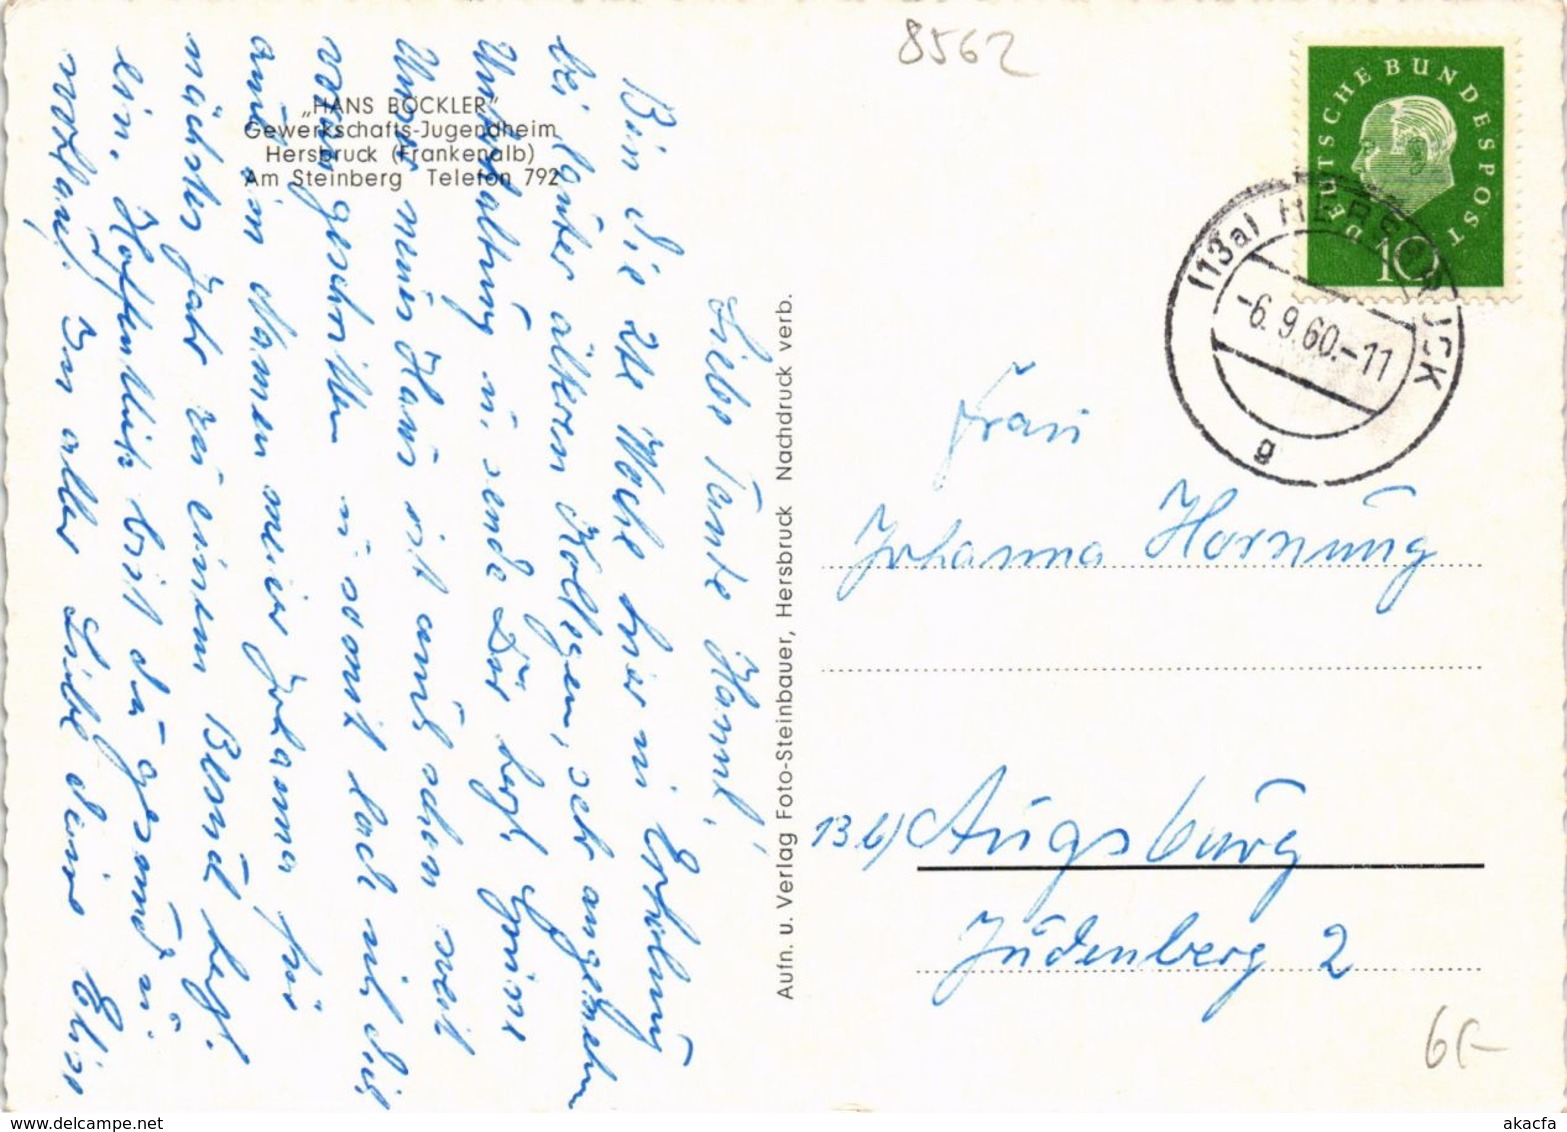 8562
„HANS BÖCKLER"
Gewerkschafts-Jugendheim
Hersbruck (Frankenalb)
Am Steinberg Telefon 792
Liebe Tante Hanni!
Bin die 2te Woche hier in Erholung
bei lauter älteren Kollegen, sehr angenehm
Unterhaltung u. sende Dir herzl. Grüsse
Unser neues Haus ist auch schon weit
vorangeschritten u somit lade ich dich
auch im Namen meiner Johanna für
nächstes Jahr zu einem Besuch herzl.
ein. Hoffentlich bist du gesund u.
wohlauf. In aller Liebe deine Elise
Aufn. u. Verlag Foto-Steinbauer, Hersbruck Nachdruck verb.
DEUTSCHE BUNDESPOST
10
(13a) HERSBRUCK
-6.9.60.-11
g
Frau
Johanna Hornung
13b) Augsburg
Judenberg 2
6,-
www.delcampe.net
akacfa